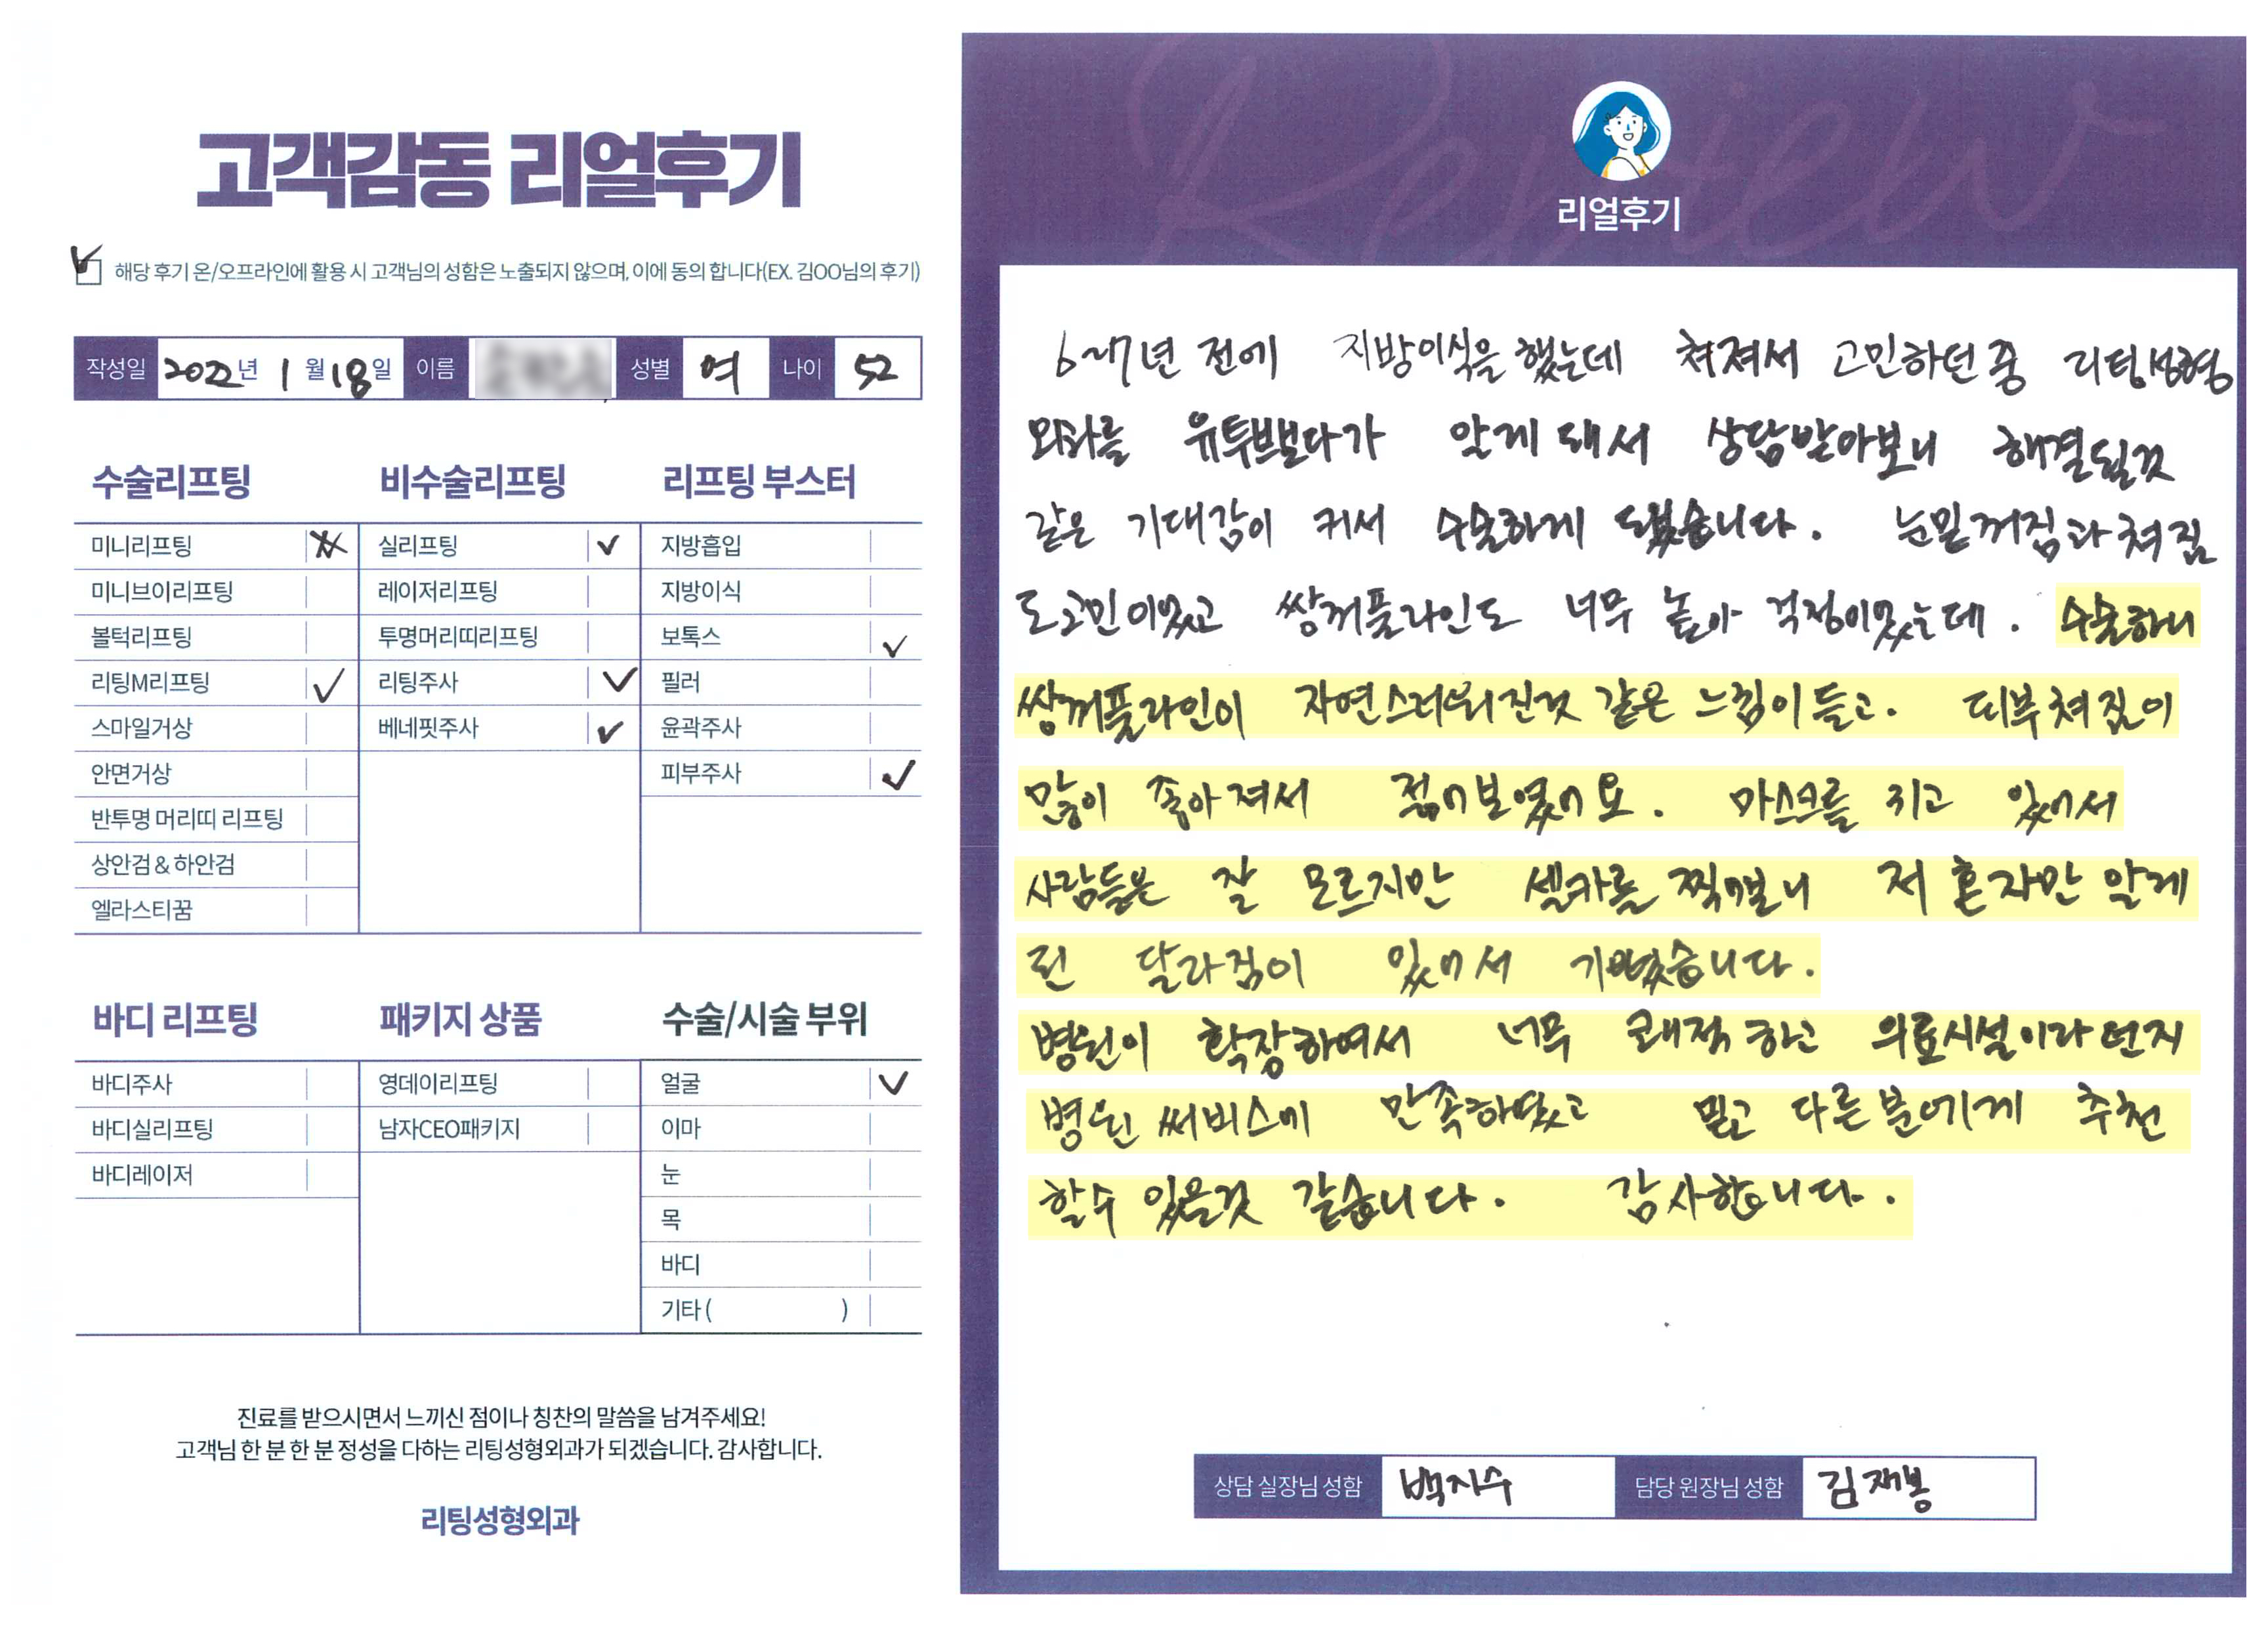 고객감동 리얼후기
해당 후기 온/오프라인에 활용 시 고객님의 성함은 노출되지 않으며, 이에 동의 합니다(EX. 김OO님의 후기)
작성일 2022년 1월 18일 이름 성별 여 나이 52
수술리프팅
미니리프팅
미니브이리프팅
볼턱리프팅
리팅M리프팅
스마일거상
안면거상
반투명 머리띠 리프팅
상안검 & 하안검
엘라스티꿈
비수술리프팅
실리프팅
레이저리프팅
투명머리띠리프팅
리팅주사
베네핏주사
리프팅 부스터
지방흡입
지방이식
보톡스
필러
윤곽주사
피부주사
바디 리프팅
바디주사
바디실리프팅
바디레이저
패키지 상품
영데이리프팅
남자CEO패키지
수술/시술 부위
얼굴
이마
눈
목
바디
기타 ( )
진료를 받으시면서 느끼신 점이나 칭찬의 말씀을 남겨주세요!
고객님 한 분 한 분 정성을 다하는 리팅성형외과가 되겠습니다. 감사합니다.
리팅성형외과
Review
리얼후기
6~7년 전에 지방이식을 했는데 쳐져서 고민하던 중 리팅성형
외과를 유투브보다가 알게 돼서 상담받아보니 해결될것
같은 기대감이 커서 수술하게 됐습니다. 눈밑꺼짐과 쳐짐
도 고민이었고 쌍꺼풀라인도 너무 높아 걱정이었는데. 수술하니
쌍꺼풀라인이 자연스러워진것 같은 느낌이 들고. 피부쳐짐이
많이 좋아져서 젊어보였어요. 마스크를 끼고 있어서
사람들은 잘 모르지만 셀카를 찍어보니 저 혼자만 알게
된 달라짐이 있어서 기뻤습니다.
병원이 확장하여서 너무 쾌적하고 의료시설이라던지
병원 써비스에 만족하였고 믿고 다른분에게 추천
할수 있을것 같습니다. 감사합니다.
상담 실장님 성함 백지수 담당 원장님 성함 김재봉